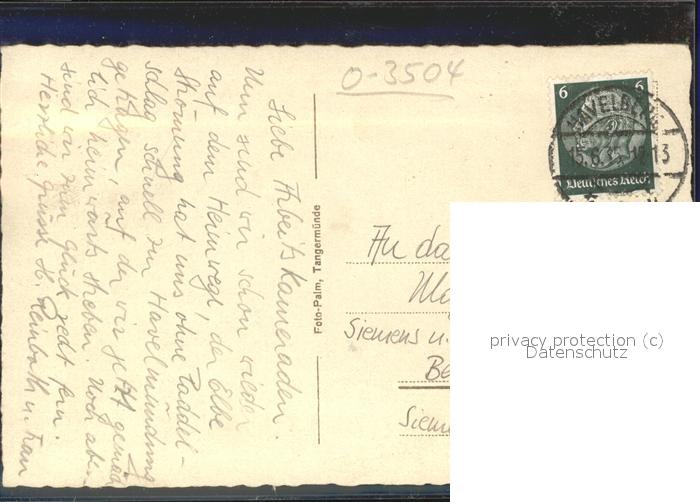 O-3504
Liebe Arbeitskameraden.
Nun sind wir schon wieder
auf dem Heimweg!, der Elbe
Strömung hat uns ohne Paddel-
schlag schnell zur Havelmündung
getragen, auf der wir jetzt gemäch
lich heimwärts streben. Noch aber
sind wir zum Glück recht fern.
Herzliche Grüsse H. Reinboth u. Frau
Foto-Palm, Tangermünde
6 6
HAVELBERG
13
Deutsches Reich
An da
Siemens u.
Be
Siem
privacy protection (c)
Datenschutz